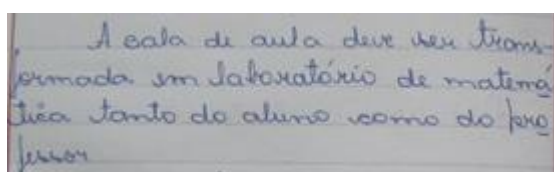 A sala de aula deve ser trans-
formada em laboratório de matemá
tica tanto do aluno como do pro
fessor